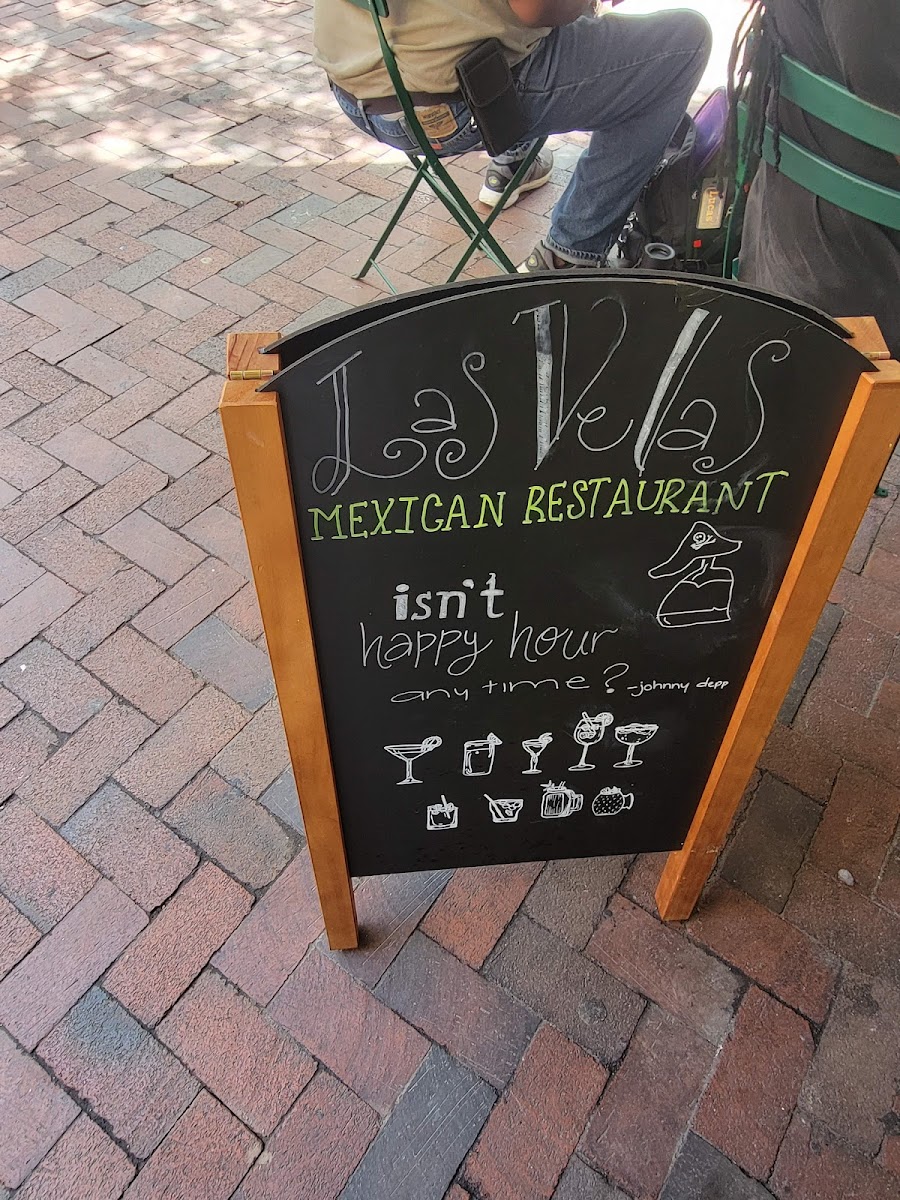 Las Velas
MEXICAN RESTAURANT
isn't
happy hour
any time? -johnny depp